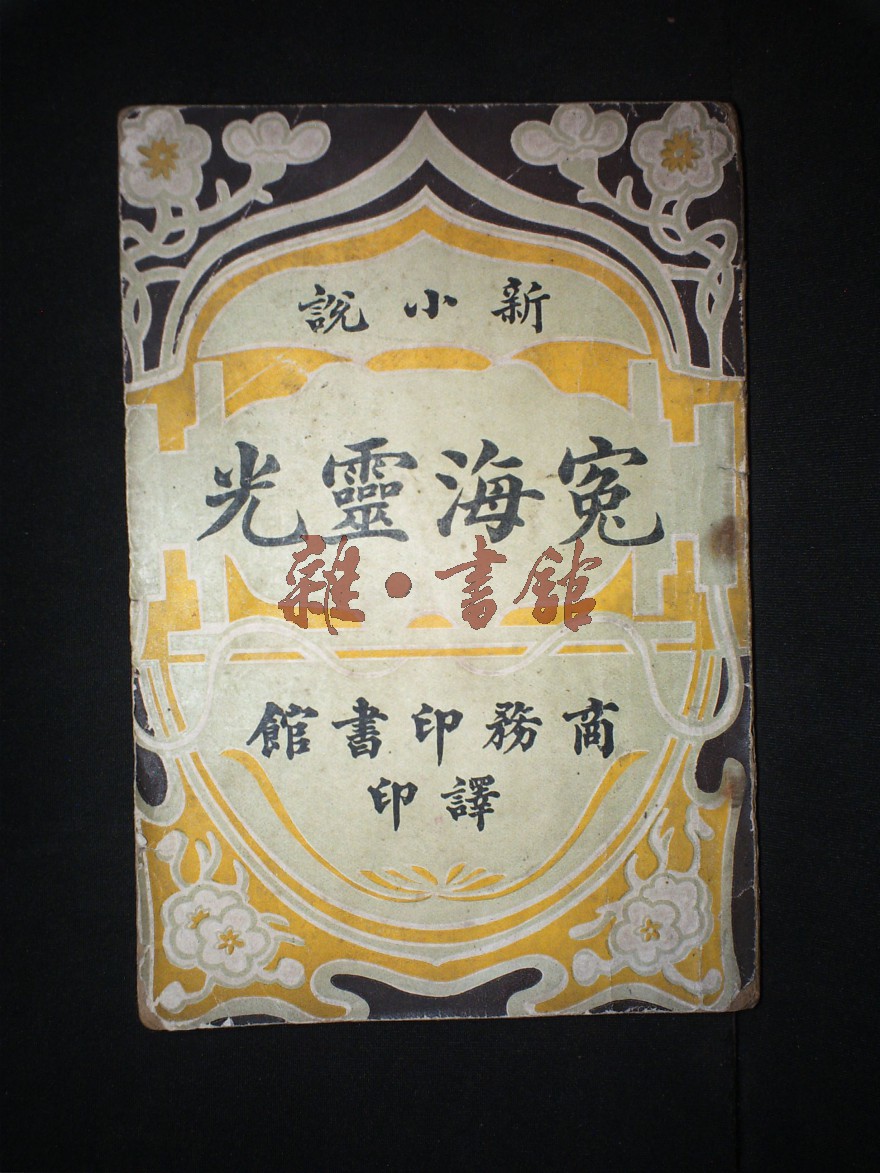 新小說
冤海靈光
雜·書館
商務印書館
譯印